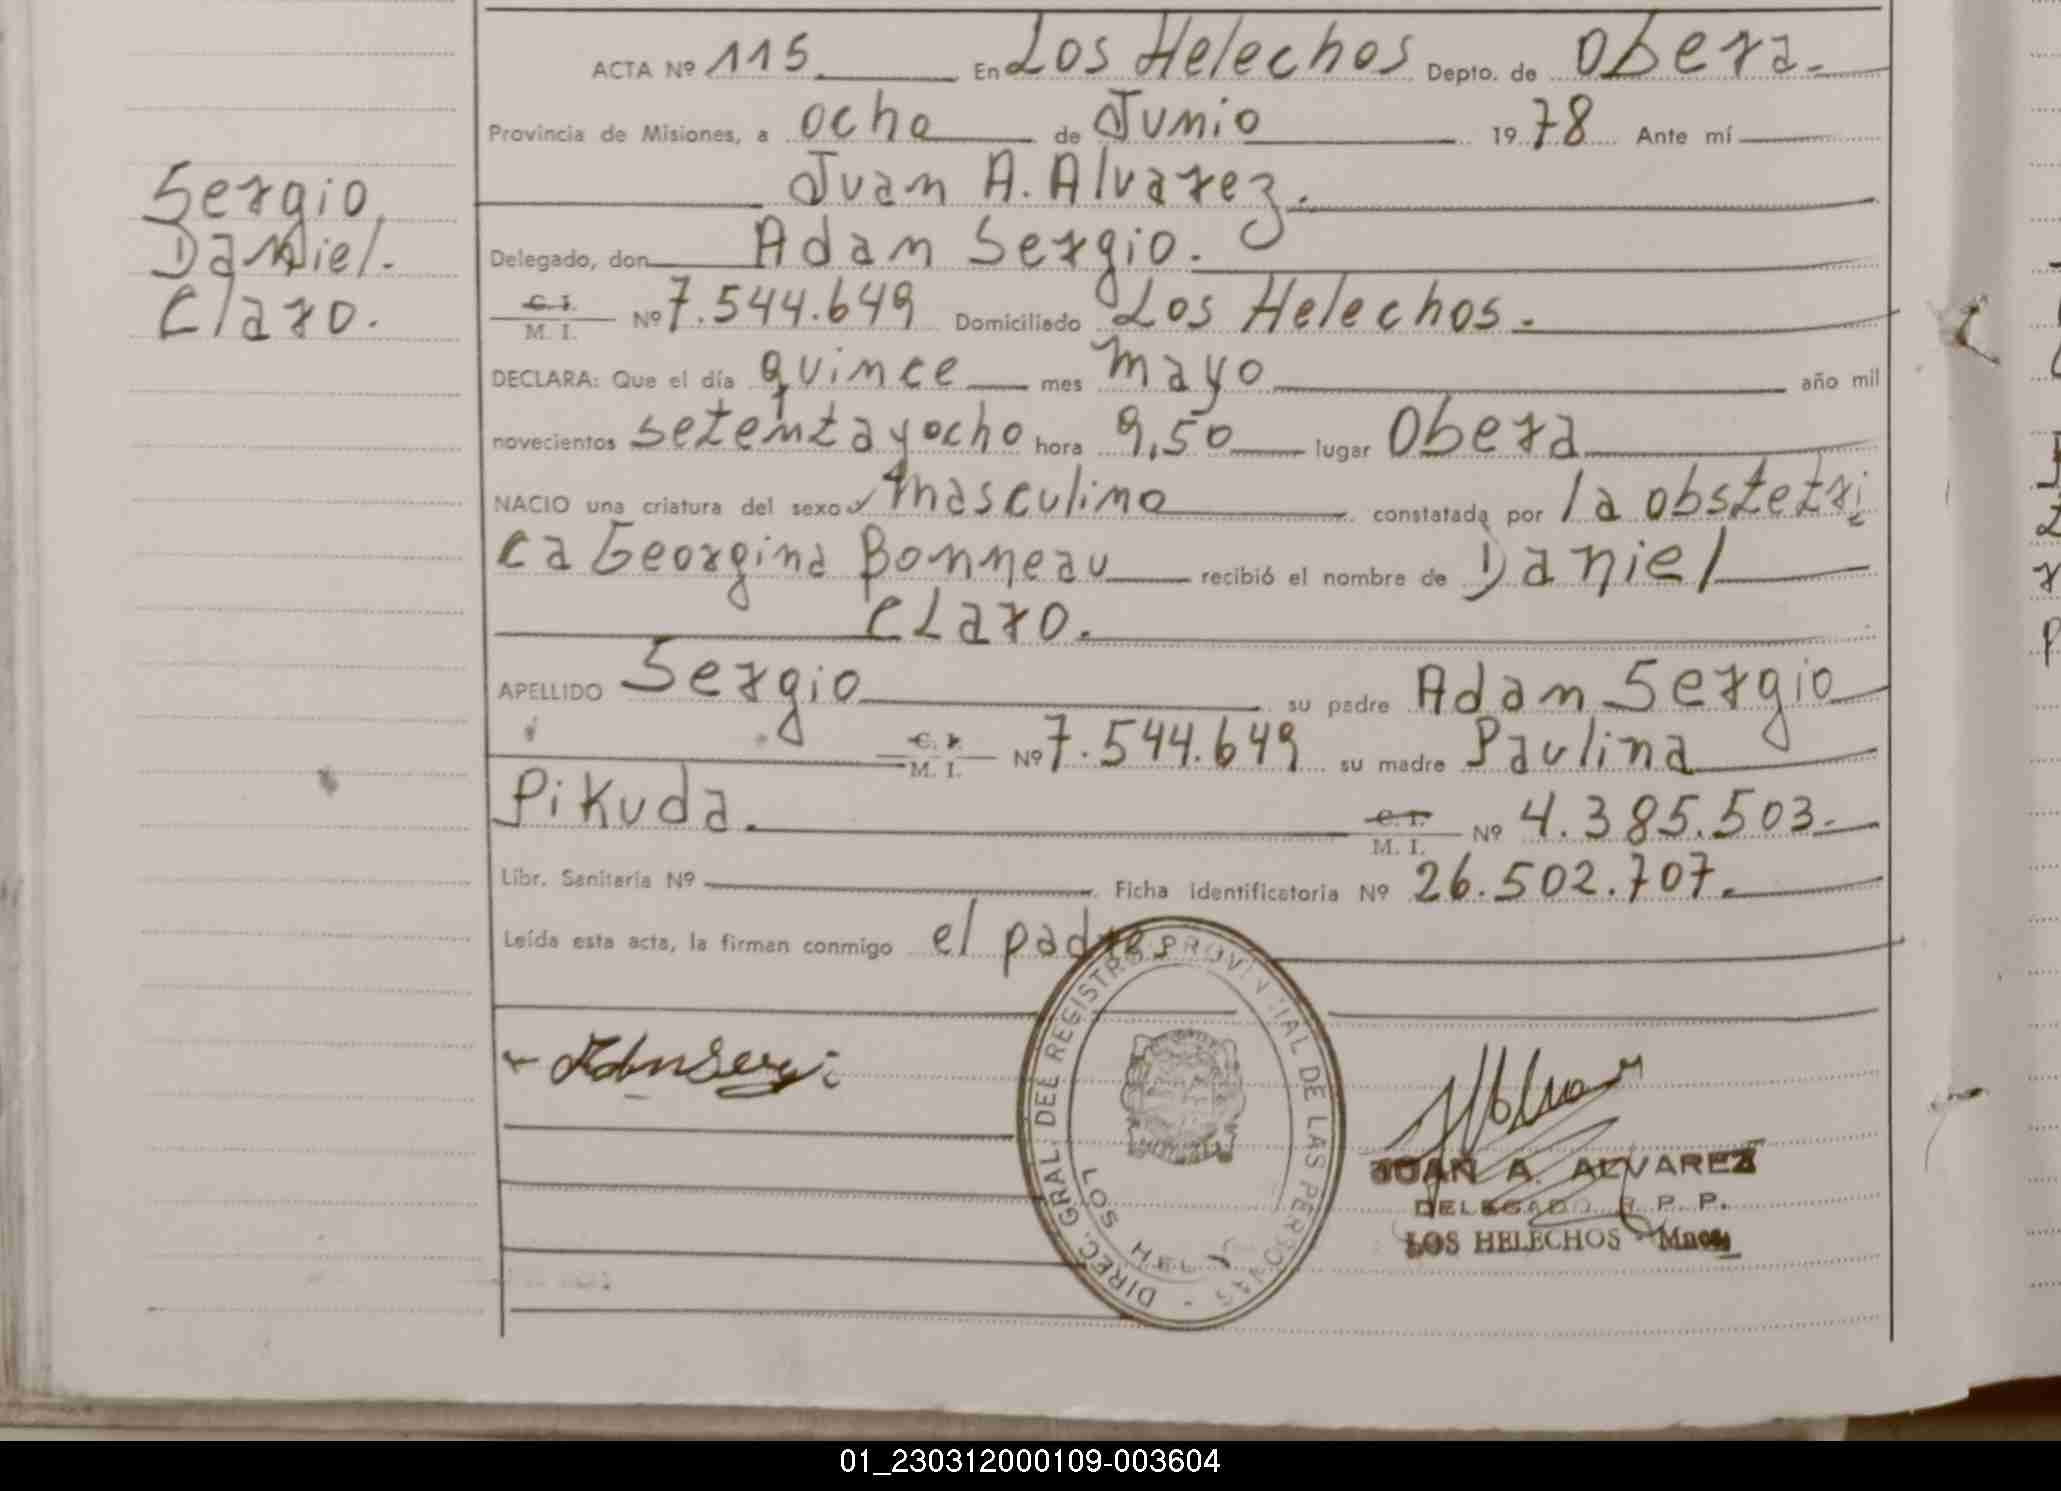 ACTA Nº 115 En Los Helechos Depto. de Obera.
Provincia de Misiones, a ocho de Junio 1978 Ante mí
Juan A. Alvarez.
Delegado, don Adam Sergio.
C. I. M. I. Nº 7.544.649 Domiciliado Los Helechos.
DECLARA: Que el día quince mes mayo año mil
novecientos setenta y ocho hora 9,50 lugar Obera
NACIO una criatura del sexo masculino constatada por la obstetri
ca Georgina Bonneau recibió el nombre de Daniel
Claro.
APELLIDO Sergio su padre Adam Sergio
C. I. M. I. Nº 7.544.649 su madre Paulina
Pikuda. C. I. M. I. Nº 4.385.503.
Libr. Sanitaria Nº Ficha identificatoria Nº 26.502.707.
Leída esta acta, la firman conmigo el padre
Sergio
Daniel.
Claro.
DIREC. GRAL. DEL REGISTRO PROVINCIAL DE LAS PERSONAS
LOS HEL
JUAN A. ALVAREZ
DELEGADO R. P. P.
LOS HELECHOS - Mnes.
01_230312000109-003604